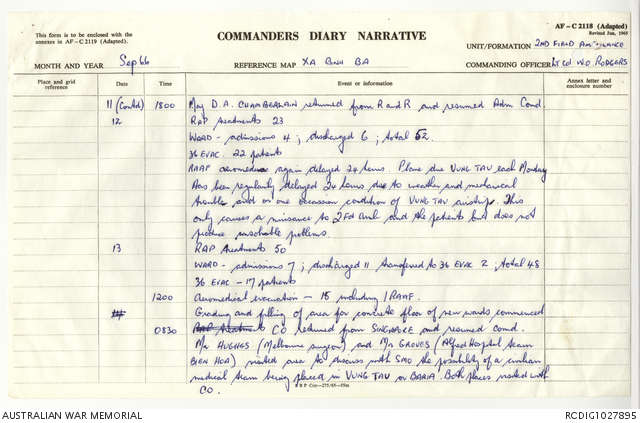 This form is to be enclosed with the
annexes in AF – C 2119 (Adapted).
COMMANDERS DIARY NARRATIVE
AF – C 2118 (Adapted)
Revised Jun, 1965
UNIT/FORMATION 2ND FIELD AMBULANCE
MONTH AND YEAR Sep 66
REFERENCE MAP XA BINH BA
COMMANDING OFFICER Lt Col W.O RODGERS
Place and grid reference
Date
Time
Event or information
Annex letter and enclosure number
11 (Contd) 1800 Maj D.A. CHAMBERLAIN returned from R and R and resumed Adm Cond.
12 RAP treatments 23
WARD - admissions 4; discharged 6; total 52.
36 EVAC. 22 patients
RAAF aeromedevac again delayed 24 hours. Plane due VUNG TAU each Monday
has been regularly delayed 24 hours due to weather and mechanical
trouble and on one occassion condition of VUNG TAU airstrip. This
only causes a nuisance to 2 Fd Amb and the patients but does not
produce insolvable problems.
13 RAP treatments 50
WARD - admissions 7; discharged 11 transferred to 36 EVAC 2, total 48
36 EVAC - 17 patients
1200 Aeromedical evacuation - 18 including 1 RAAF.
Grading and filling of area for concrete floor of new wards commenced
0830 RAP treatments CO returned from SINGAPORE and resumed comd.
Mr HUGHES (Melbourne surgeon) and Mr GROVES (Alfred Hospital team
BIEN HOA) visited area to discuss with SMO the possibility of a civilian
medical team being placed in VUNG TAU or BARIA. Both places visited with
CO.
AUSTRALIAN WAR MEMORIAL
RCDIG1027895